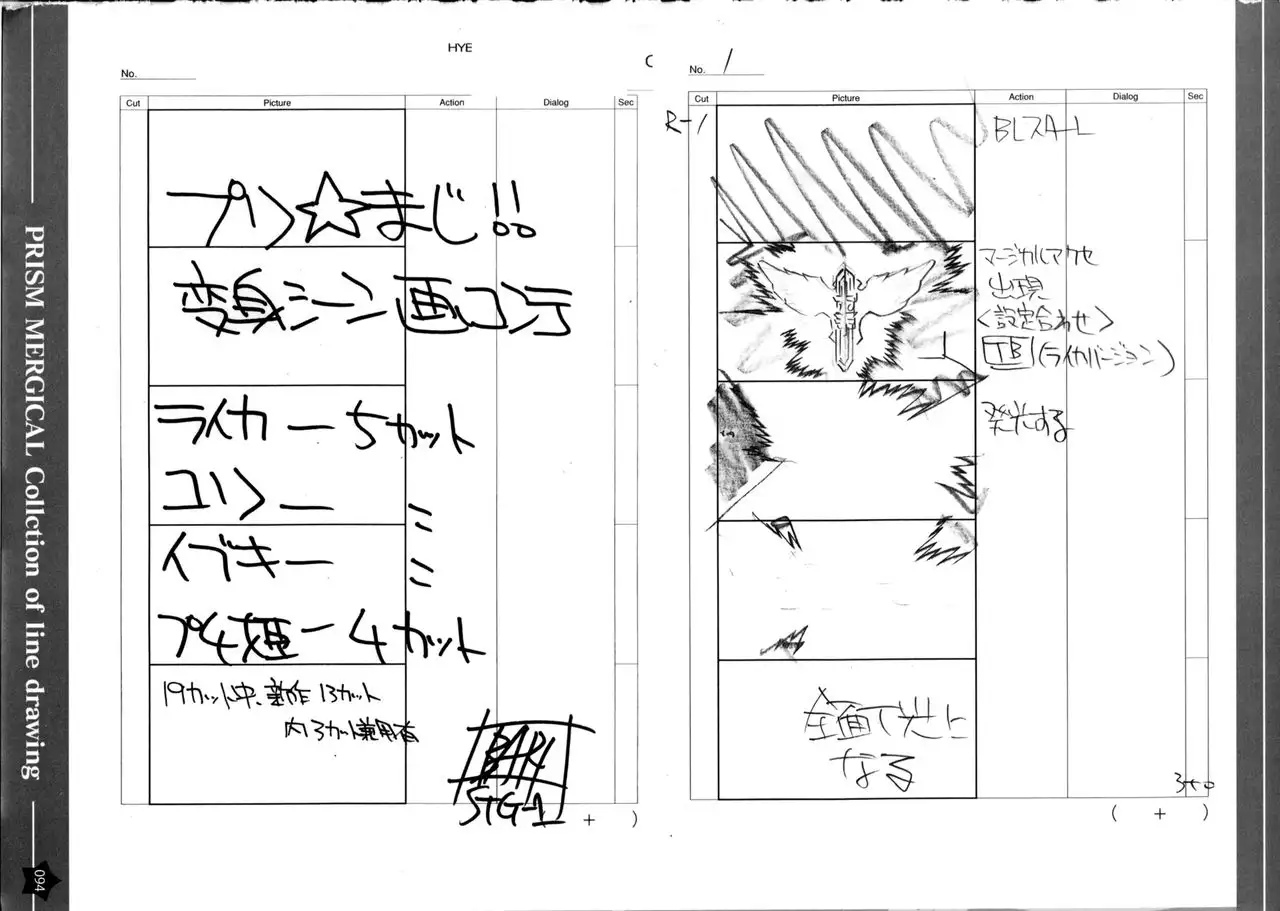 PRISM MERGICAL Collction of line drawing
094
HYE
No.
Cut Picture Action Dialog Sec
プリ☆まじ!!
変身シーン画コンテ
ライカ ー 5カット
ユリン ー 〃
イブキ ー 〃
プ4姫 ー 4カット
19カット中、新作13カット
内13カット兼用有
BARI
STG-1
+ )
C
No. 1
Cut Picture Action Dialog Sec
R-1
BLスタート
マージカルアクセ
出現
<設定合わせ>
TB (ライカバージョン)
発光する
全面で光に
なる
3+0
( + )